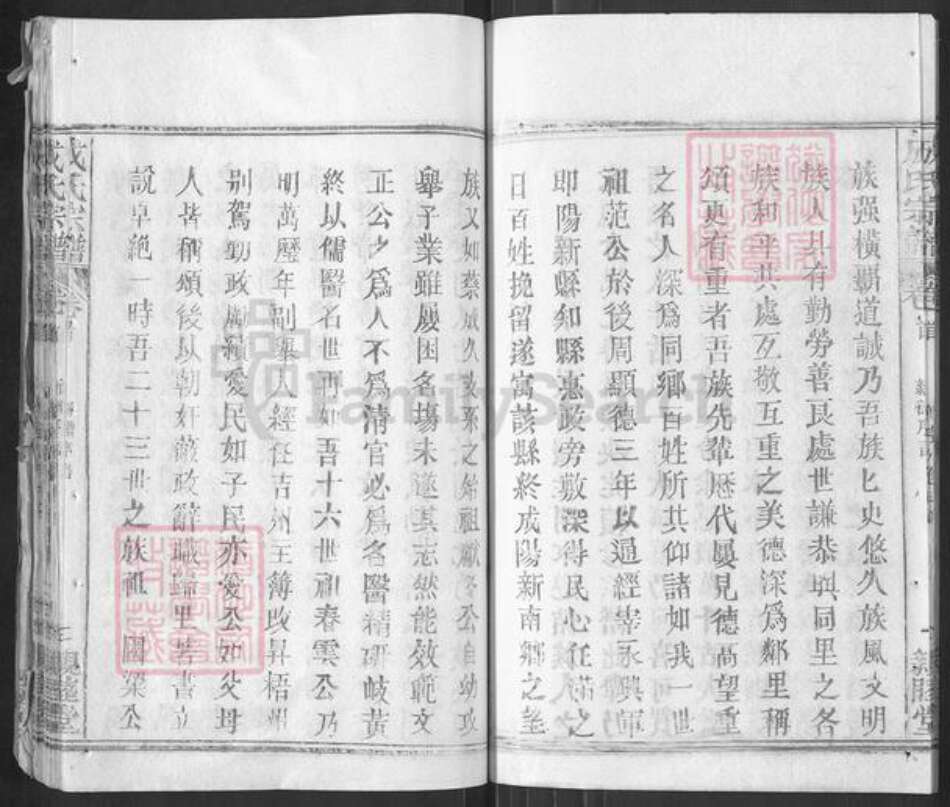 族强橫霸道誠乃吾族匕史悠久族風文明
族人具有勤勞善良處世謙恭與同里之各
族和平共處互敬互重之美德深爲鄰里稱
頌更有重者吾族先輩歷代屢見德高望重
之名人深爲同鄉百姓所共仰諸如我一世
祖范公於後周顯德三年以通經宰永興軍
即陽新縣知縣惠政旁敷深得民心任滿之
日百姓挽留遂寓該縣終成陽新南鄉之望
族又如蔡成久支系之始祖獻
公自幼攻
舉子業雖屢困名塲未遂其志然能效範文
正公之爲人不爲清官必爲名醫精研岐黃
終以儒醫名世再如吾十六世祖春雲公乃
明萬歷年副舉人經任吉州主簿政昇梧州
別駕勤政廟續愛民如子民亦愛公如父母
人皆稱頌後以朝奸蔽政辭職歸里著書立
說卓絶一時吾二十三世之族祖國梁公
成氏宗譜
成氏宗譜
卷首
親睦堂